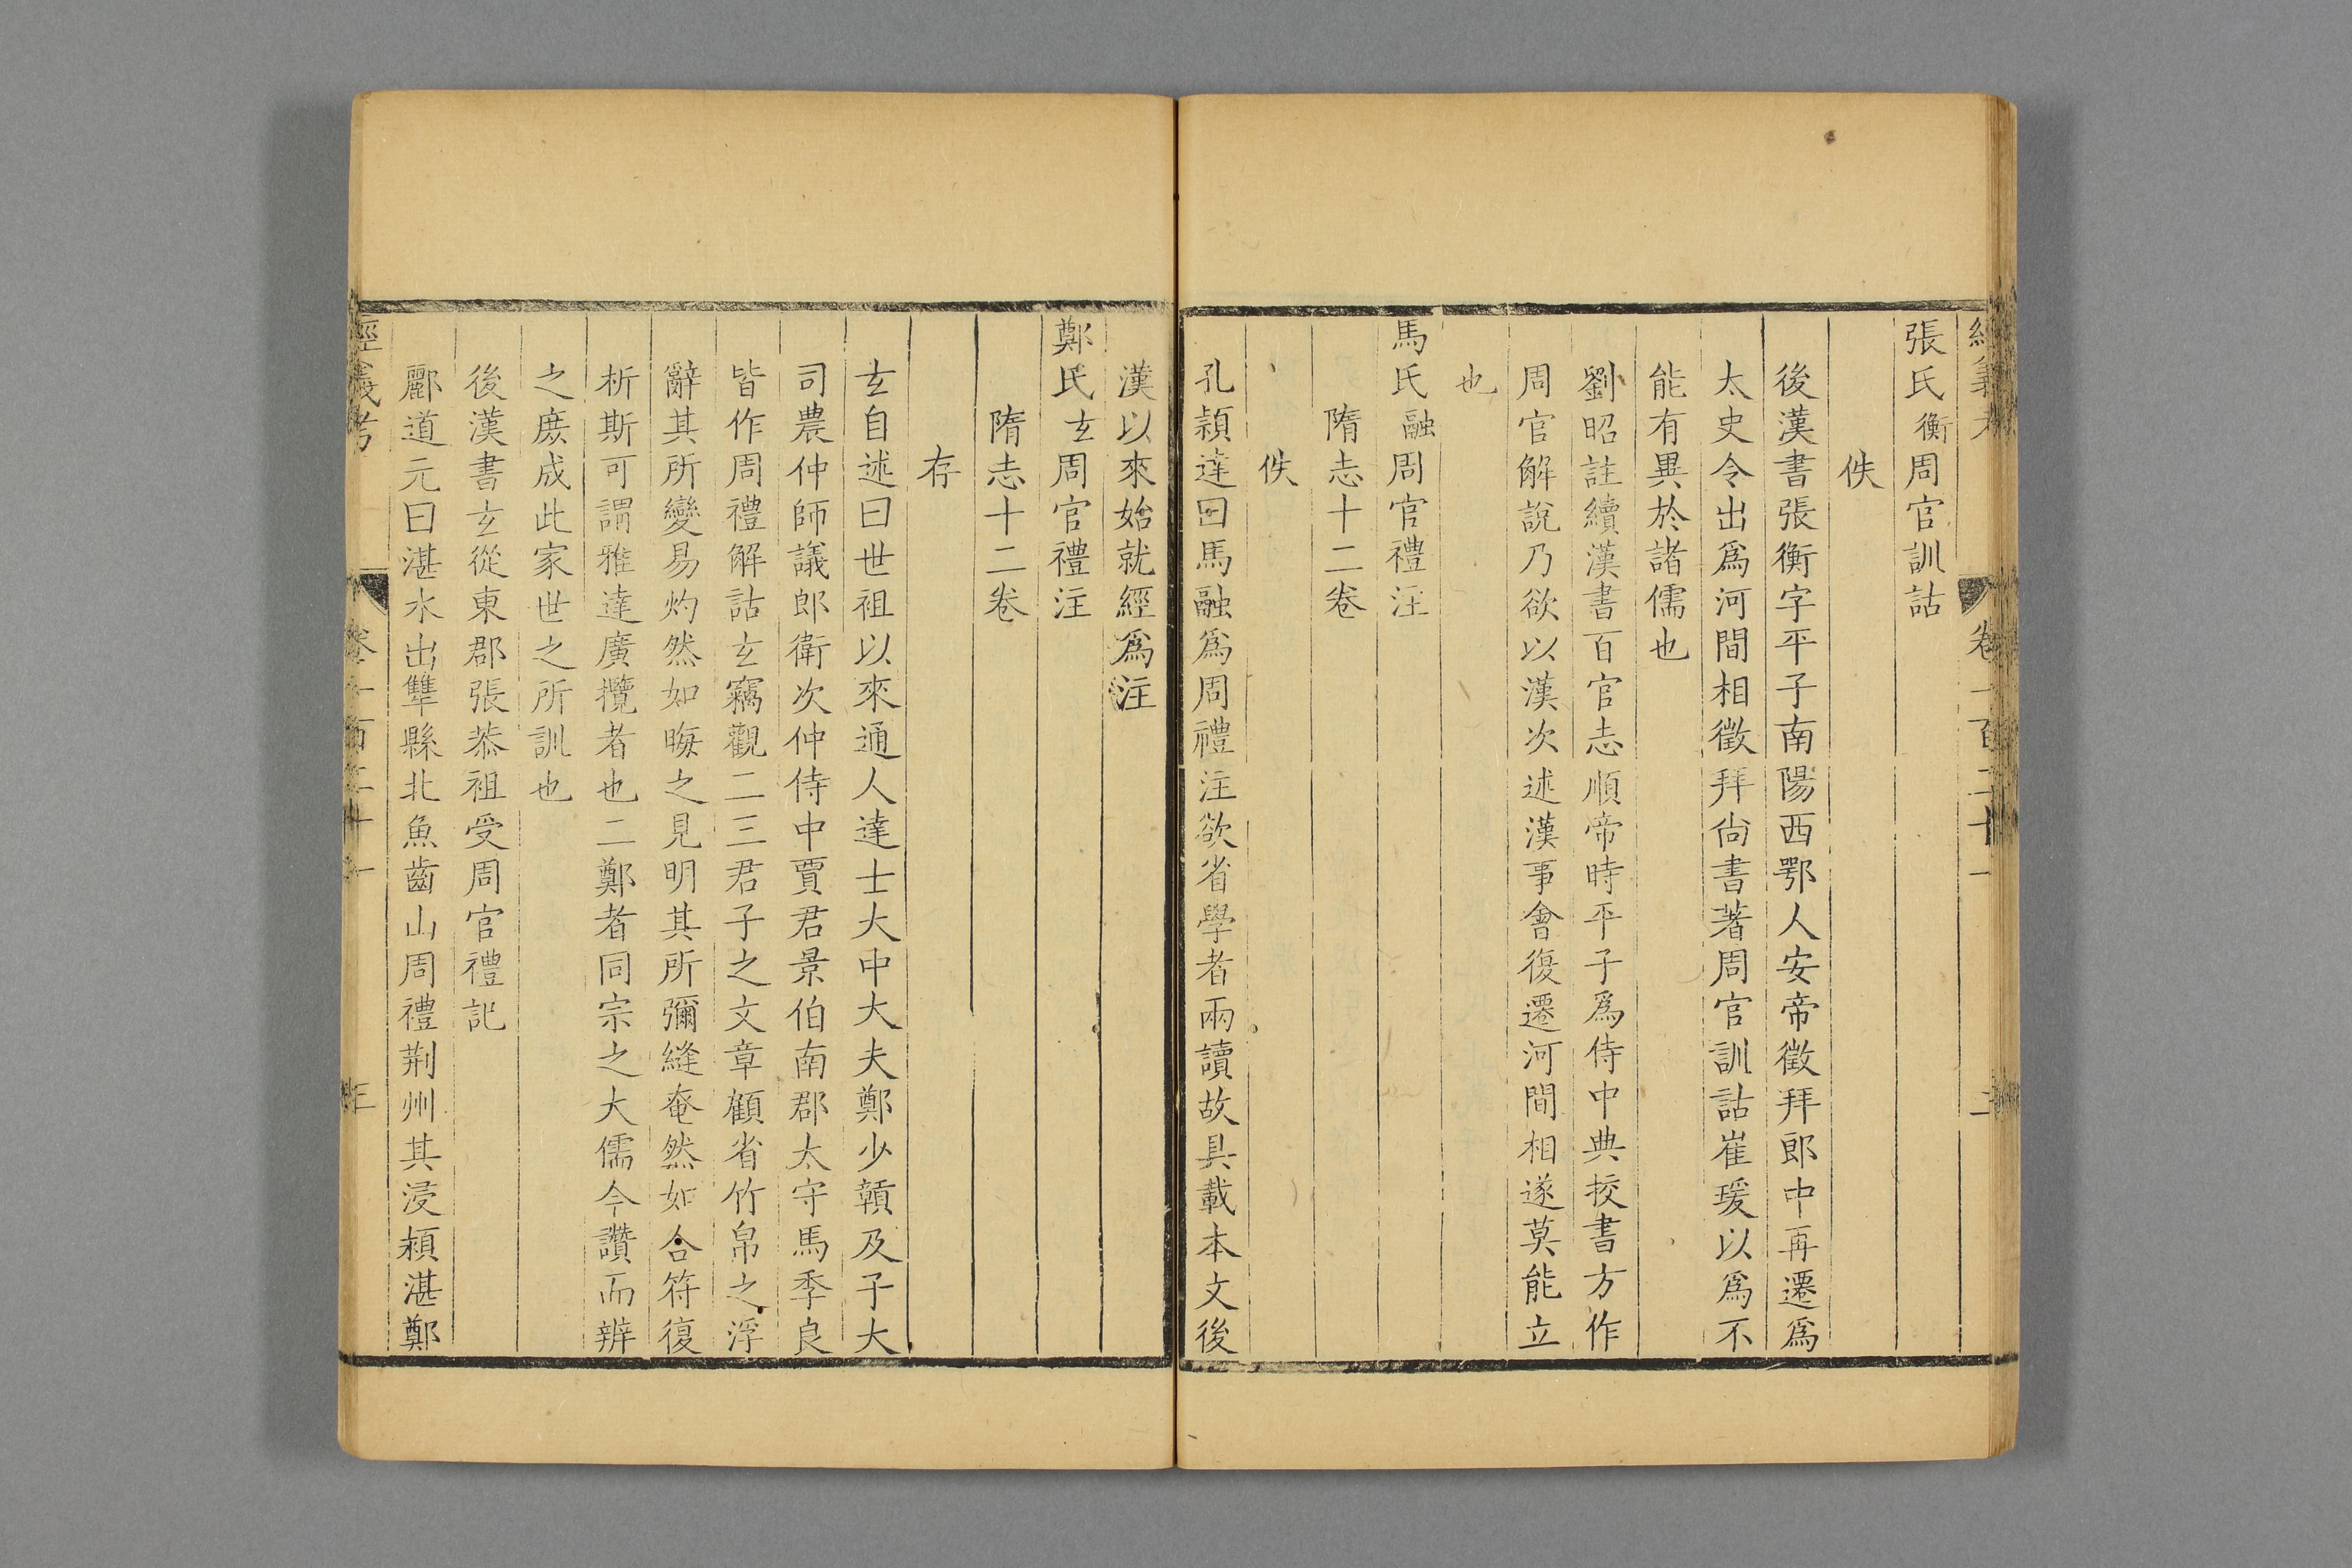 張氏衡周官訓詁
佚
後漢書張衡字平子南陽西鄂人安帝徵拜郎中再遷爲
太史令出爲河間相徵拜尙書著周官訓詁崔瑗以爲不
能有異於諸儒也
劉昭註續漢書百官志順帝時平子爲侍中典挍書方作
周官解說乃欲以漢次述漢事會復遷河間相遂莫能立
也
馬氏融周官禮注
隋志十二卷
佚
孔潁達曰馬融爲周禮注欲省學者兩讀故具載本文後
漢以來始就經爲注
鄭氏玄周官禮注
隋志十二卷
存
玄自述曰世祖以來通人達士大中大夫鄭少贑及子大
司農仲師議郎衛次仲侍中賈君景伯南郡太守馬季良
皆作周禮解詁玄竊觀二三君子之文章顧省竹帛之浮
辭其所變易灼然如晦之見明其所彌縫奄然如合符復
析斯可謂雅達廣攬者也二鄭者同宗之大儒今讚而辨
之庶成此家世之所訓也
後漢書玄從東郡張恭祖受周官禮記
酈道元曰湛水出犨縣北魚齒山周禮荆州其浸潁湛鄭
經義考